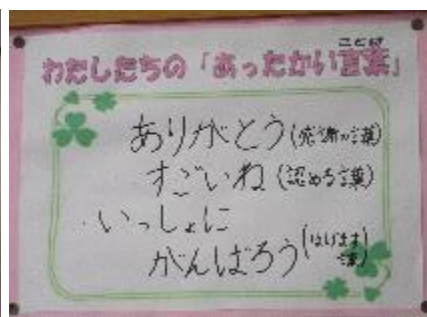 ことば
わたしたちの「あったかい言葉」
ありがとう(感謝の言葉)
すごいね(認める言葉)
・いっしょに
がんばろう(はげます言葉)